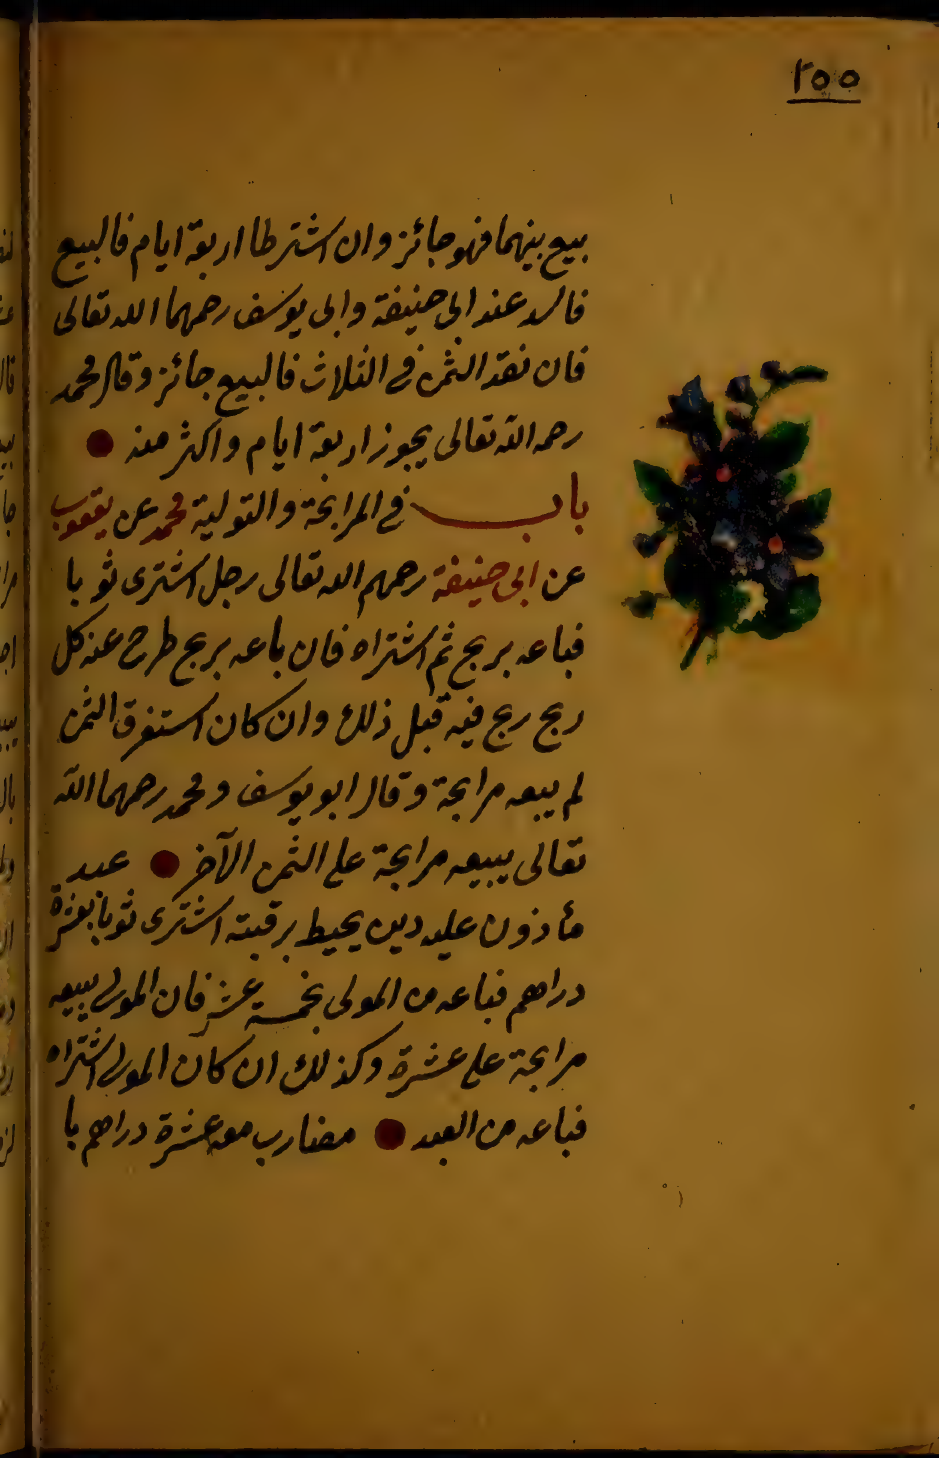 ٢٥٥
بيع بينهما فهو جائز وان اشترطا اربعة ايام فالبيع
فاسد عند ابى حنيفة وابى يوسف رحمهما الله تعالى
فان نقد الثمن فى الثلاث فالبيع جائز وقال محمد
رحمه الله تعالى يجوز اربعة ايام واكثر منه
باب فى المرابحة والتولية محمد عن يعقوب
عن ابى حنيفة رحمهم الله تعالى رجل اشترى ثوبا
فباعه بربح ثم اشتراه فان باعه بربح طرح عنه كل
ربح ربح فيه قبل ذلك وان كان استغرق الثمن
لم يبعه مرابحة وقال ابو يوسف ومحمد رحمهما الله
تعالى يبيعه مرابحة على الثمن الآخر عبد
مأذون عليه دين يحيط برقبته اشترى ثوبا بعشرة
دراهم فباعه من المولى بخمسة عشر فان المولى يبيعه
مرابحة على عشرة وكذلك ان كان المولى اشتراه
فباعه من العبد مضارب معه عشرة دراهم با